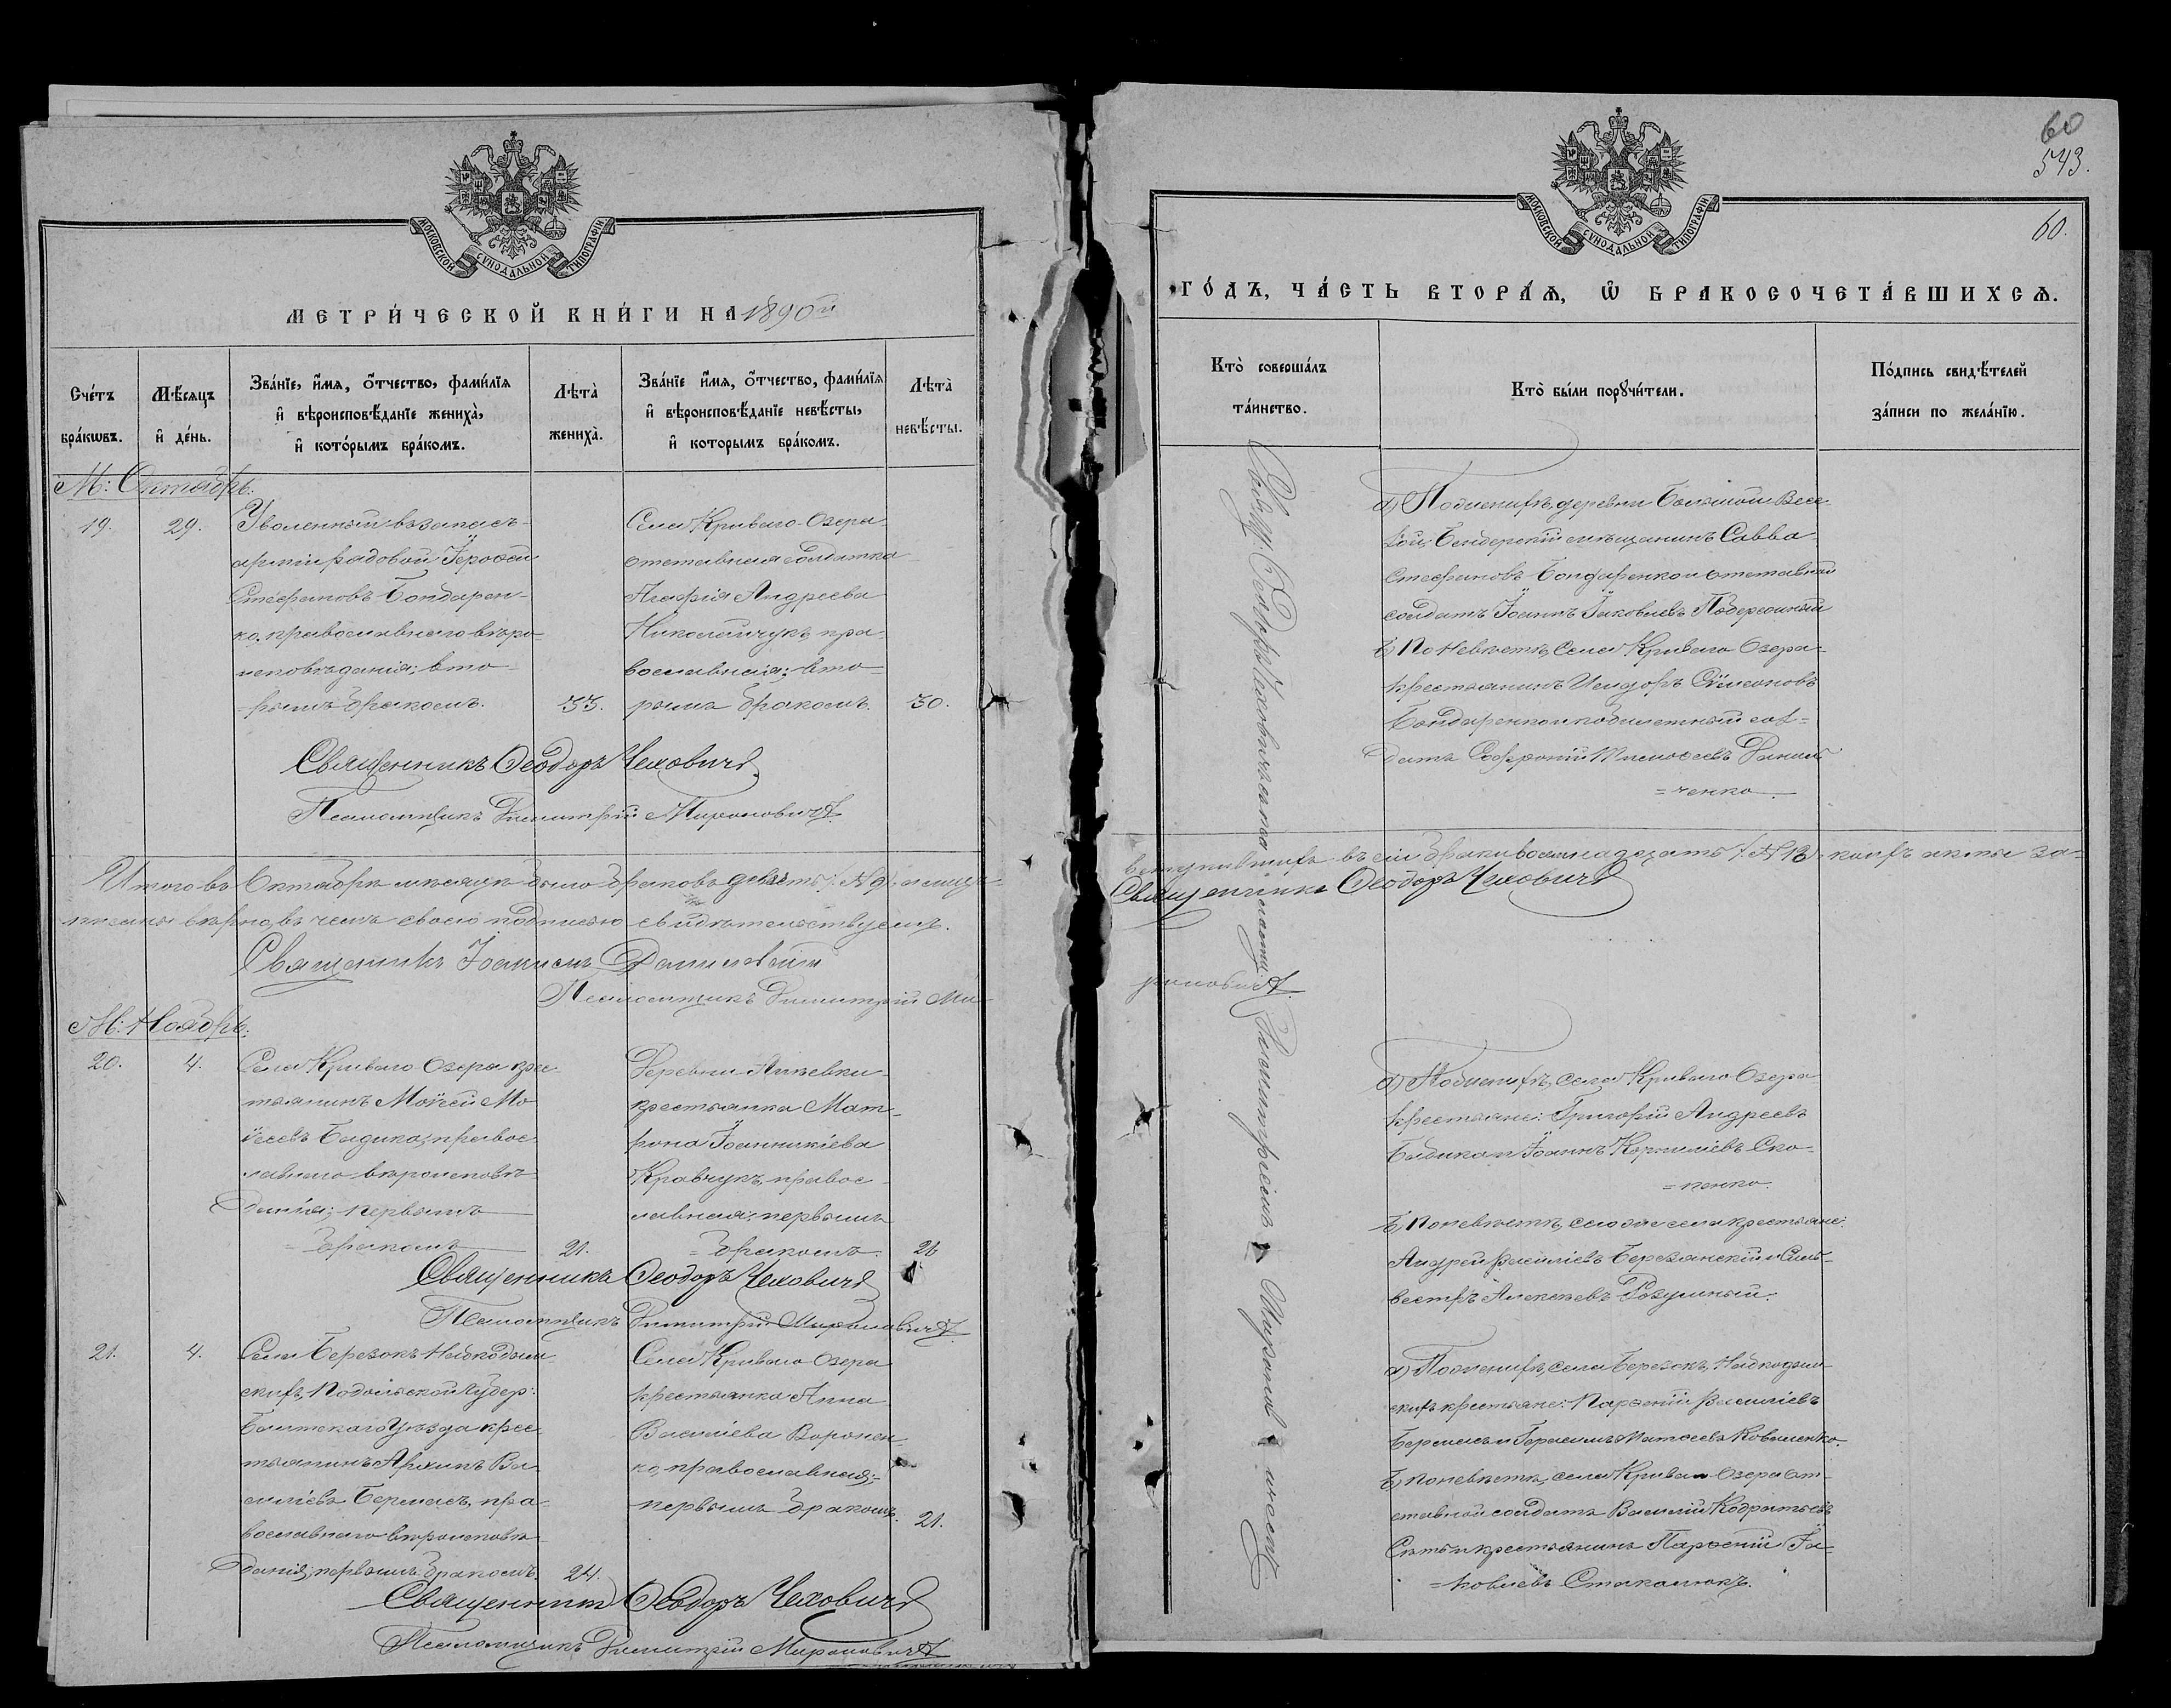 МОСКОВСКОЙ СѴНОДАЛЬНОЙ ТИПОГРАФІИ
МЕТРИ́ЧЕСКОЙ КНИ́ГИ НА 1890й
Сче́тъ бра́кѡвъ.
Мѣ́сяцъ и҆ де́нь.
Зва́нїе, и҆́мя, ѻ҆́тчество, фами́лїя и҆ вѣроисповѣ́данїе жениха̀, и҆ кото́рымъ бра́комъ.
Лѣта̀ жениха̀.
Зва́нїе и҆́мя, ѻ҆́тчество, фами́лїя и҆ вѣроисповѣ́данїе невѣ́сты, и҆ которымъ бра́комъ.
Лѣта̀ невѣ́сты.
М: Октябрь.
19.
29.
Уволенный въ запасъ
арміи рядовой Іероѳей
Стефановъ Бондарен-
ко, православнаго вѣро-
исповѣданія; вто-
рымъ бракомъ.
33.
Села Криваго-Озера
отставная солдатка
Агафія Андреева
Николайчукъ, пра-
вославная; вто-
рымъ бракомъ.
30.
Священникъ Ѳеодоръ Чеховичъ
Псаломщикъ Димитрій Мироновичъ
Итого въ Октябрѣ мѣсяцѣ было браковъ девять /:№9:/, а лицъ
писаны вѣрно, въ чемъ своею подписью свидѣтельствуемъ.
Священникъ Іоакимъ
Псаломщикъ Димитрій Ми-
М: Ноябрь.
20.
4.
Села Криваго Озера крес-
тьянинъ Моѵсей Мо
ѵсеевъ Бидика, правос-
лавнаго вѣроисповѣ-
данія; первымъ
бракомъ
21.
Деревни
крестьянка Мат-
рона Іоанникіева
Кравчукъ, правос-
лавная; первымъ
бракомъ.
Священникъ Ѳеодоръ Чеховичъ
Псаломщикъ Димитрій Мироновичъ
21.
4.
Села Березокъ
скихъ, Подольской Губер:
Балтскаго Уѣзда крес-
тьянинъ Архипъ Ва-
силіевъ пра-
вославнаго вѣроисповѣ-
данія; первымъ бракомъ.
24.
Села Криваго Озера
крестьянка Анна
Василіева Воронен-
ко, православная;
первымъ бракомъ.
21.
Священникъ Ѳеодоръ Чеховичъ
Псаломщикъ Димитрій Мироновичъ
60
543.
60.
МОСКОВСКОЙ СѴНОДАЛЬНОЙ ТИПОГРАФІИ
ГО́ДЪ, ЧА́СТЬ ВТОРА́Ѧ, Ѡ҆ БРАКОСОЧЕТА́ВШИХСѦ.
Кто̀ соверша́лъ та́инство.
Кто̀ бы́ли порꙋчи́тели.
По́дпись свидѣ́телей за́писи по жела́нїю.
а) По женихѣ, деревни Большой Весе-
лой, Бендерскій мѣщанинъ Савва
Стефановъ Бондаренко и отставный
солдатъ Іоаннъ Іаковлевъ
б) По Невѣстѣ, Села Криваго Озера
крестьянинъ Исидоръ Сѵмеоновъ
Бондаренко и билетный сол-
датъ Софроній Тимоѳеевъ Данил-
ченко.
вступившихъ въ сіи браки восемнадцать /:№18:/ коихъ акты за-
Священникъ Ѳеодоръ Чеховичъ
роновичъ.
а) По женихѣ, села Криваго-Озера
крестьяне: Григорій Андреевъ
Бидика и Іоаннъ Корниліевъ Ско-
пенко.
б) По невѣстѣ, сего же села крестьяне:
Андрей Василіевъ Березанскій и Силь-
вестръ Алексѣевъ Розумный.
а) По женихѣ, села Березокъ,
скихъ крестьяне: Парѳеній Василіевъ
и Герасимъ Матѳеевъ Коваленко.
б) По невѣстѣ, села Криваго Озера от-
ставной солдатъ Василій Кодратьевъ
и крестьянинъ Парѳеній Іа-
ковлевъ
Свящ: Ѳеодоръ Чеховичъ съ псаломщикомъ Димитріемъ Мироновичемъ